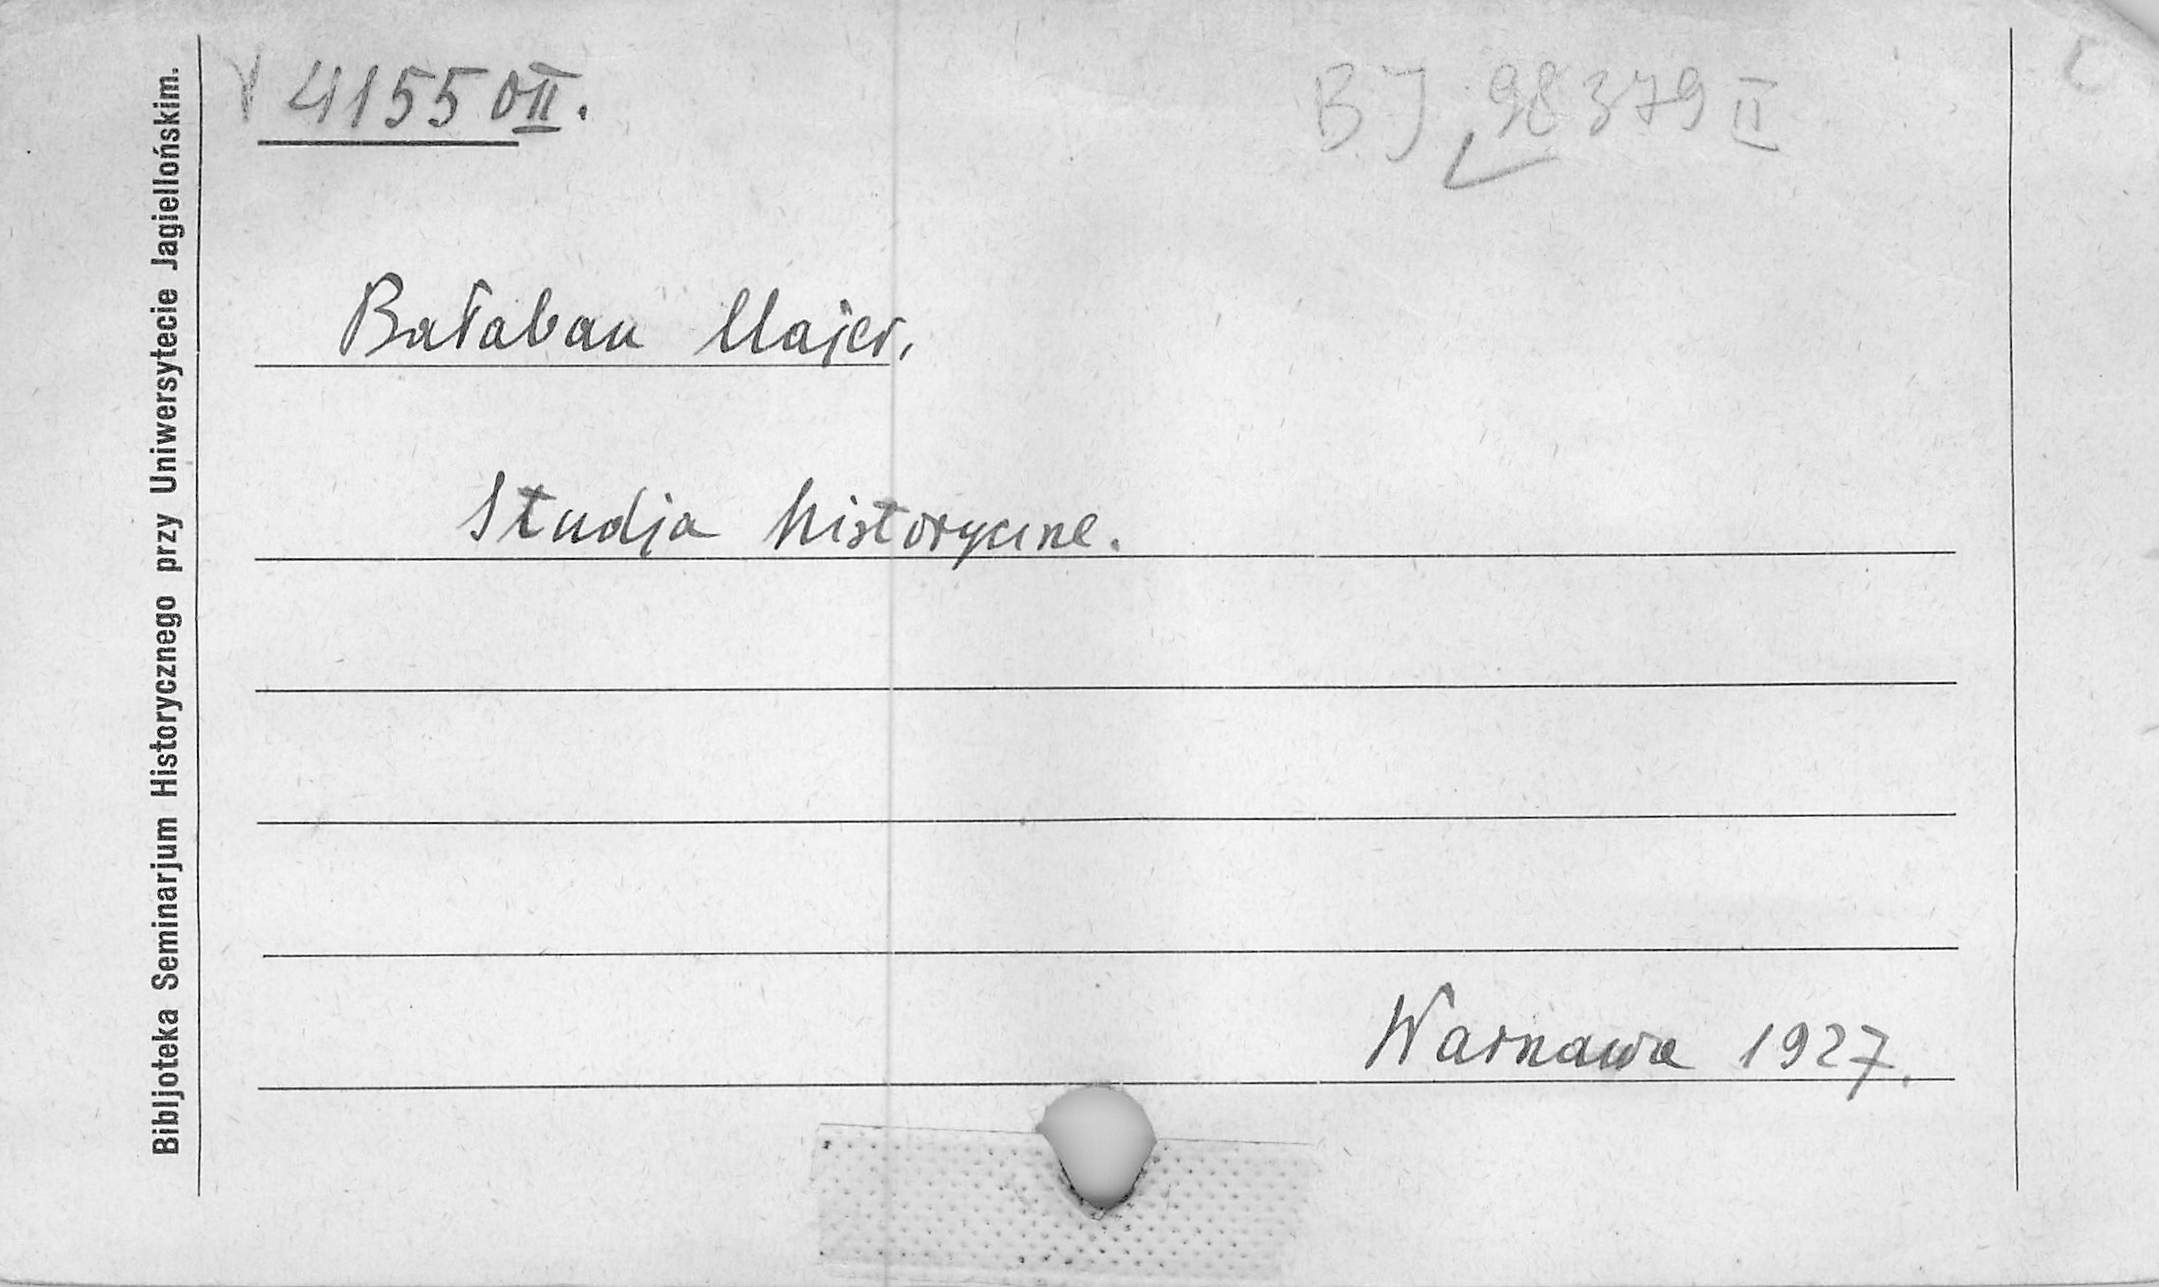 V 41550 II.
BJ 98379 II
Bałaban Majer.
Studja historyczne.
Warszawa 1927.
Bibljoteka Seminarjum Historycznego przy Uniwersytecie Jagiellońskim.